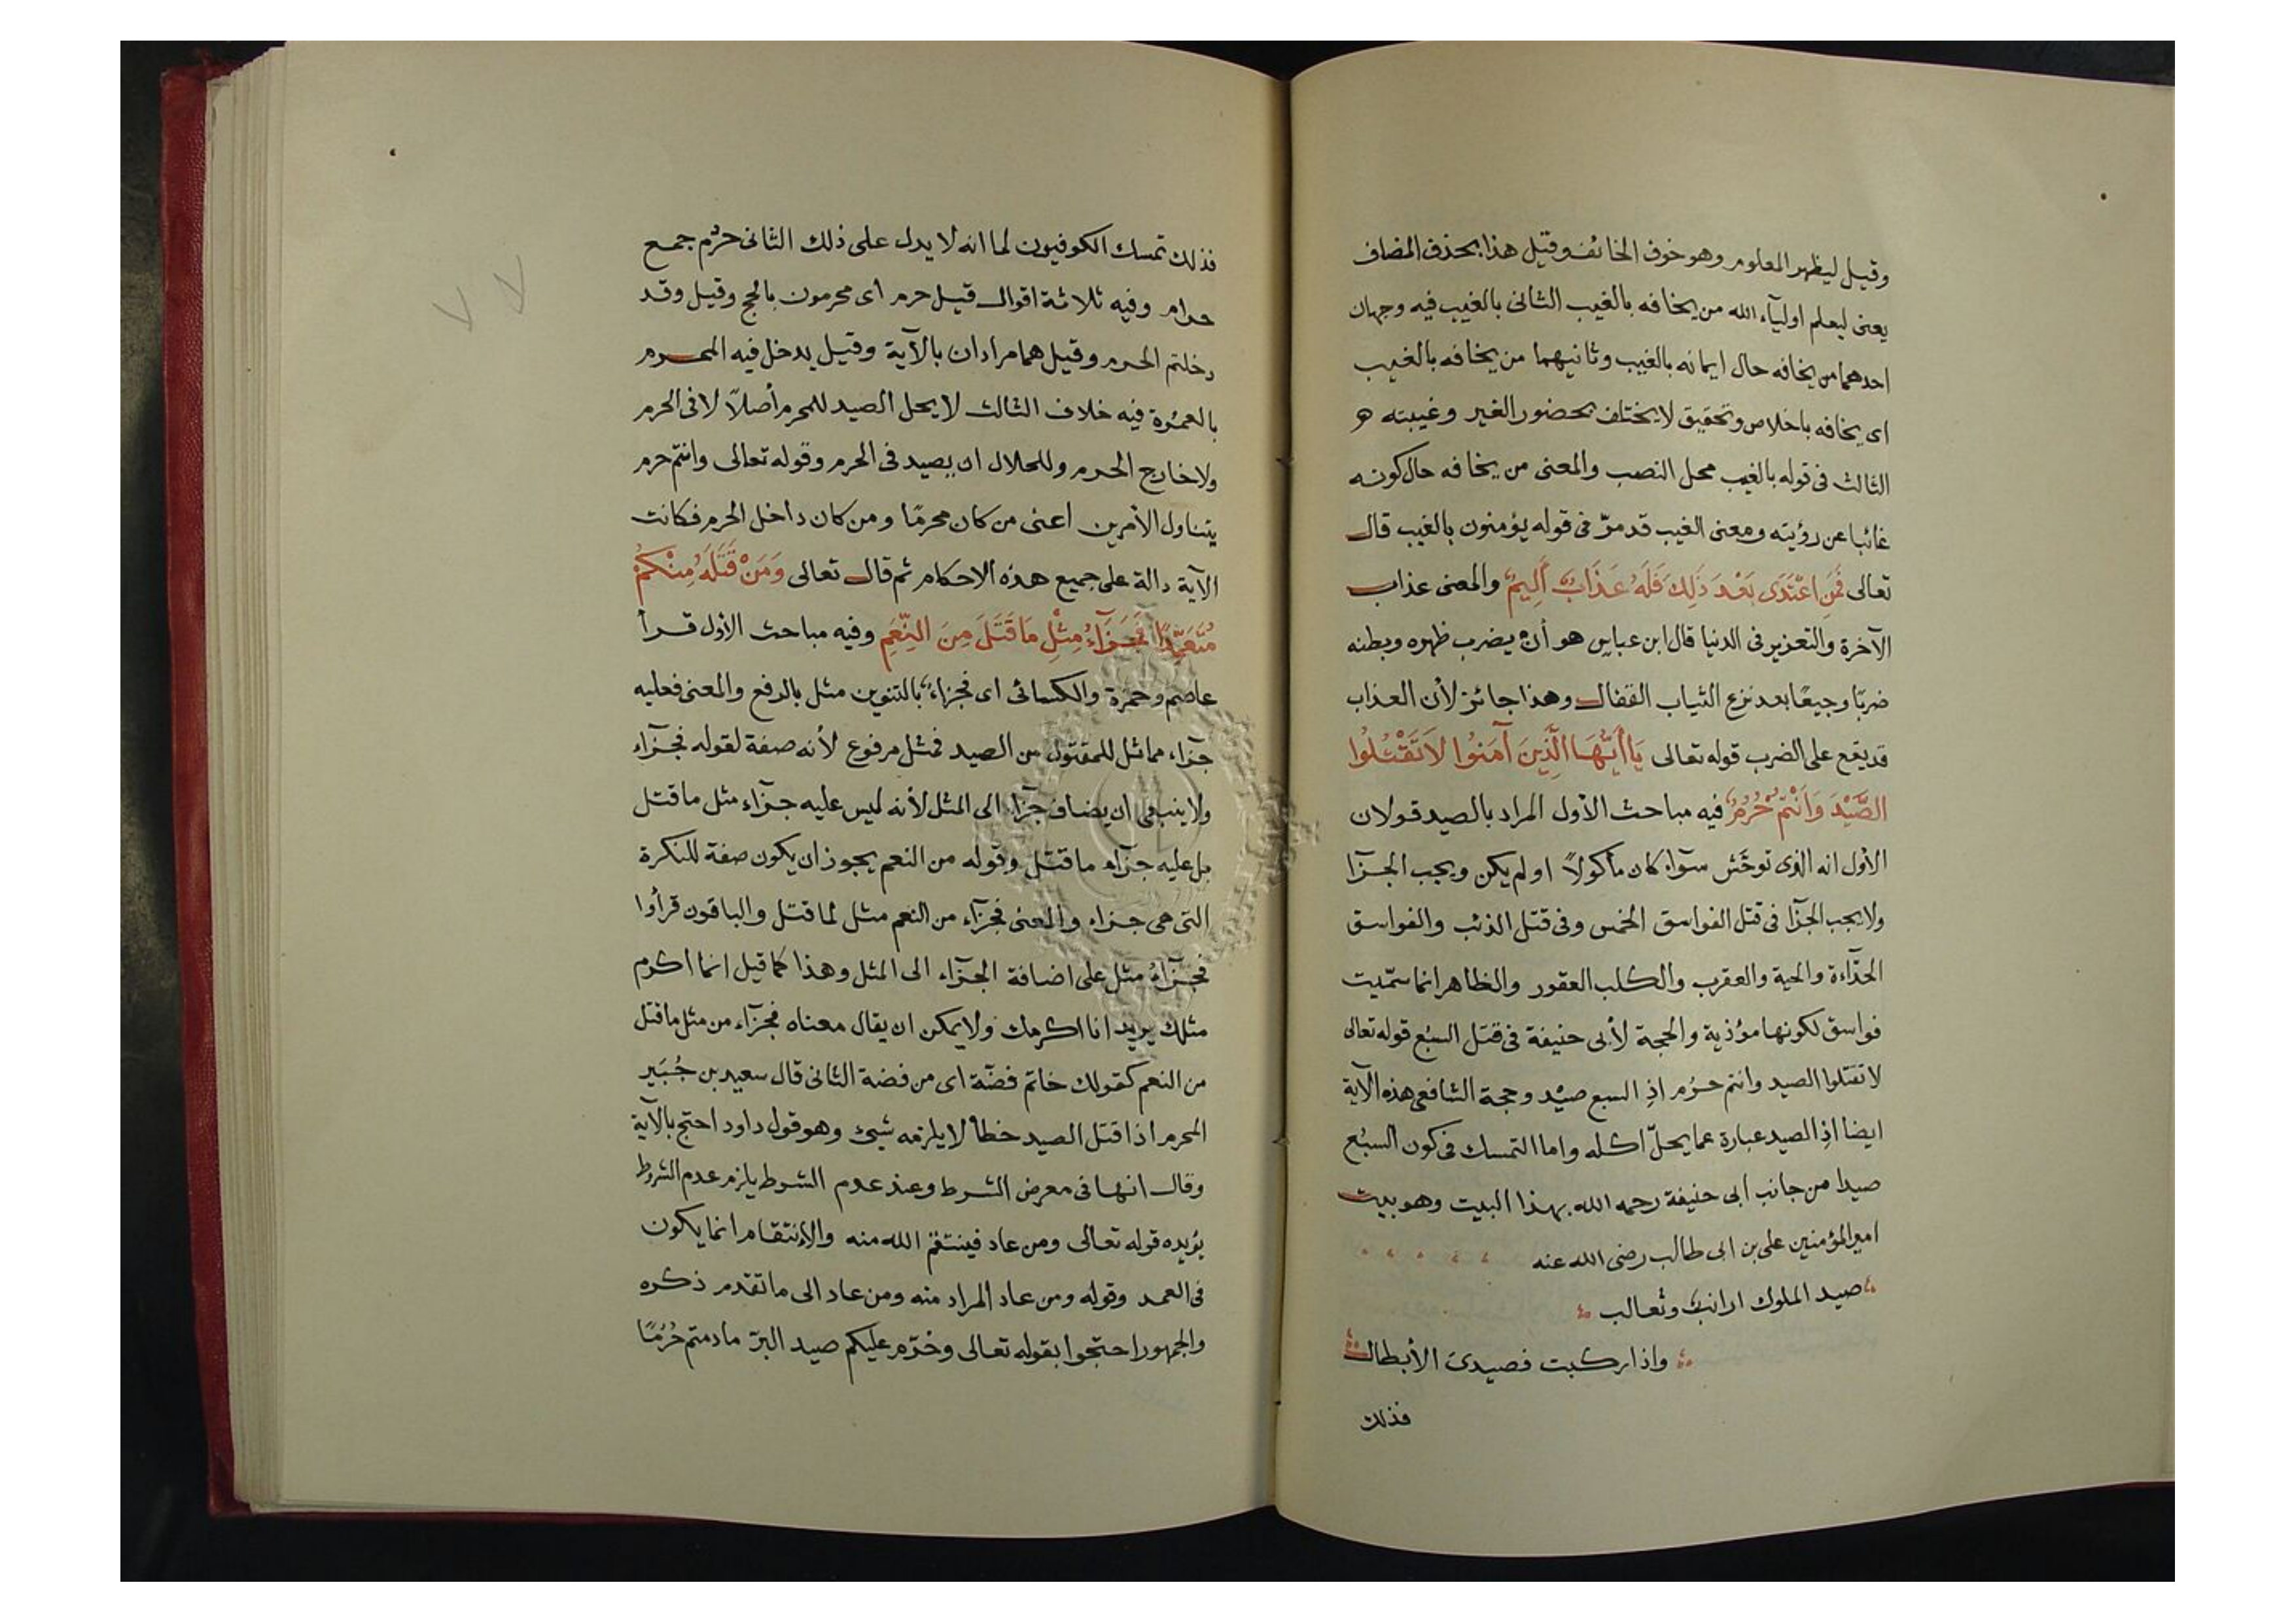 وقيل ليظهر المعلوم وهو خوف الخائف وقيل هذا بحذف المضاف
يعنى ليعلم اوليآء الله من يخافه بالغيب الثانى بالغيب فيه وجهان
احدهما من يخافه حال ايمانه بالغيب وثانيهما من يخافه بالغيب
اى يخافه باخلاص وتحقيق لا يختلف بحضور الغير وغيبته
الثالث فى قوله بالغيب محل النصب والمعنى من يخافه حال كونه
غائبا عن رؤيته ومعنى الغيب قد مرّ فى قوله يؤمنون بالغيب قال
تعالى فَمَنِ اعْتَدَى بَعْدَ ذَلِكَ فَلَهُ عَذَابٌ أَلِيمٌ والمعنى عذاب
الآخرة والتعزير فى الدنيا قال ابن عباس هو أن يضرب ظهره وبطنه
ضربًا وجيعًا بعد نزع الثياب القفال وهذا جائز لأن العذاب
قد يقع على الضرب قوله تعالى يَا أَيُّهَا الَّذِينَ آمَنُوا لاَ تَقْتُلُوا
الصَّيْدَ وَاَنْتُمْ حُرُمٌ فيه مباحث الأول المراد بالصيد قولان
الأول انه الذى توحّش سوآء كان مأكولاً او لم يكن ويجب الجزآ
ولا يجب الجزآ فى قتل الفواسق الخمس وفى قتل الذئب والفواسق
الحدّاءة والحية والعقرب والكلب العقور والظاهر انما سمّيت
فواسق لكونها مؤذية والحجة لأبى حنيفة فى قتل السبُع قوله تعالى
لا تقتلوا الصيد وانتم حرُم اذِ السبع صيْد وحجة الشافعى هذه الآية
ايضا اذِ الصيد عبارة عما يحلّ اكله واما التمسك فى كون السبُع
صيدا من جانب ابى حنيفة رحمه الله بهذا البيت وهو بيت
امير المؤمنين على بن ابى طالب رضى الله عنه
صيد الملوك ارانبٌ وثعالب
واذا ركبت فصيدىَ الأبطال
فذلك
فذلك تمسك الكوفيون لما انه لا يدل على ذلك الثانى حرُم جمع
حرام وفيه ثلاثة اقوال قيل حرم اى محرمون بالحج وقيل وقد
دخلتم الحرم وقيل هما مرادان بالآية وقيل يدخل فيه المحرم
بالعمُرة فيه خلاف الثالث لا يحل الصيد للمحرم أصلاً لا فى الحرم
ولا خارج الحرم وللحلال ان يصيد فى الحرم وقوله تعالى وانتم حرم
يتناول الأمرين اعنى من كان محرمًا ومن كان داخل الحرم فكانت
الآية دالة على جميع هذه الاحكام ثم قال تعالى وَمَنْ قَتَلَهُ مِنْكُمْ
مُتَعَمِّدًا فَجَزَآءُ مِثْلِ مَا قَتَلَ مِنَ النَّعَمِ وفيه مباحث الأول قرأ
عاصم وحمزة والكسائى اى فجزاءٌ بالتنوين مثل بالرفع والمعنى فعليه
جزاء مماثل للمقتول من الصيد فمثل مرفوع لأنه صفة لقوله فجزآء
ولا ينبغى ان يضاف جزآء الى المثل لأنه ليس عليه جزآء مثل ما قتل
بل عليه جزآء ما قتل وقوله من النعم يجوز ان يكون صفة للنكرة
التى هى جزاء والمعنى فجزآء من النعم مثل لما قتل والباقون قرأوا
فجزآءُ مثل على اضافة الجزآء الى المثل وهذا كما قيل انما اكرم
مثلك يريد انا اكرمك ولا يمكن ان يقال معناه فجزآء من مثل ما قتل
من النعم كقولك خاتم فضّة اى من فضة الثانى قال سعيد بن جُبَير
المحرم اذا قتل الصيد خطأ لا يلزمه شيئ وهو قول داود احتج بالآية
وقال انها فى معرض الشرط وعند عدم الشرط يلزم عدم الشروط
يؤيده قوله تعالى ومن عاد فينتقم الله منه والإنتقام انما يكون
فى العمد وقوله ومن عاد المراد منه ومن عاد الى ما تقدم ذكره
والجمهور احتجوا بقوله تعالى وحُرّم عليكم صيد البرّ ما دمتم حُرُمًا